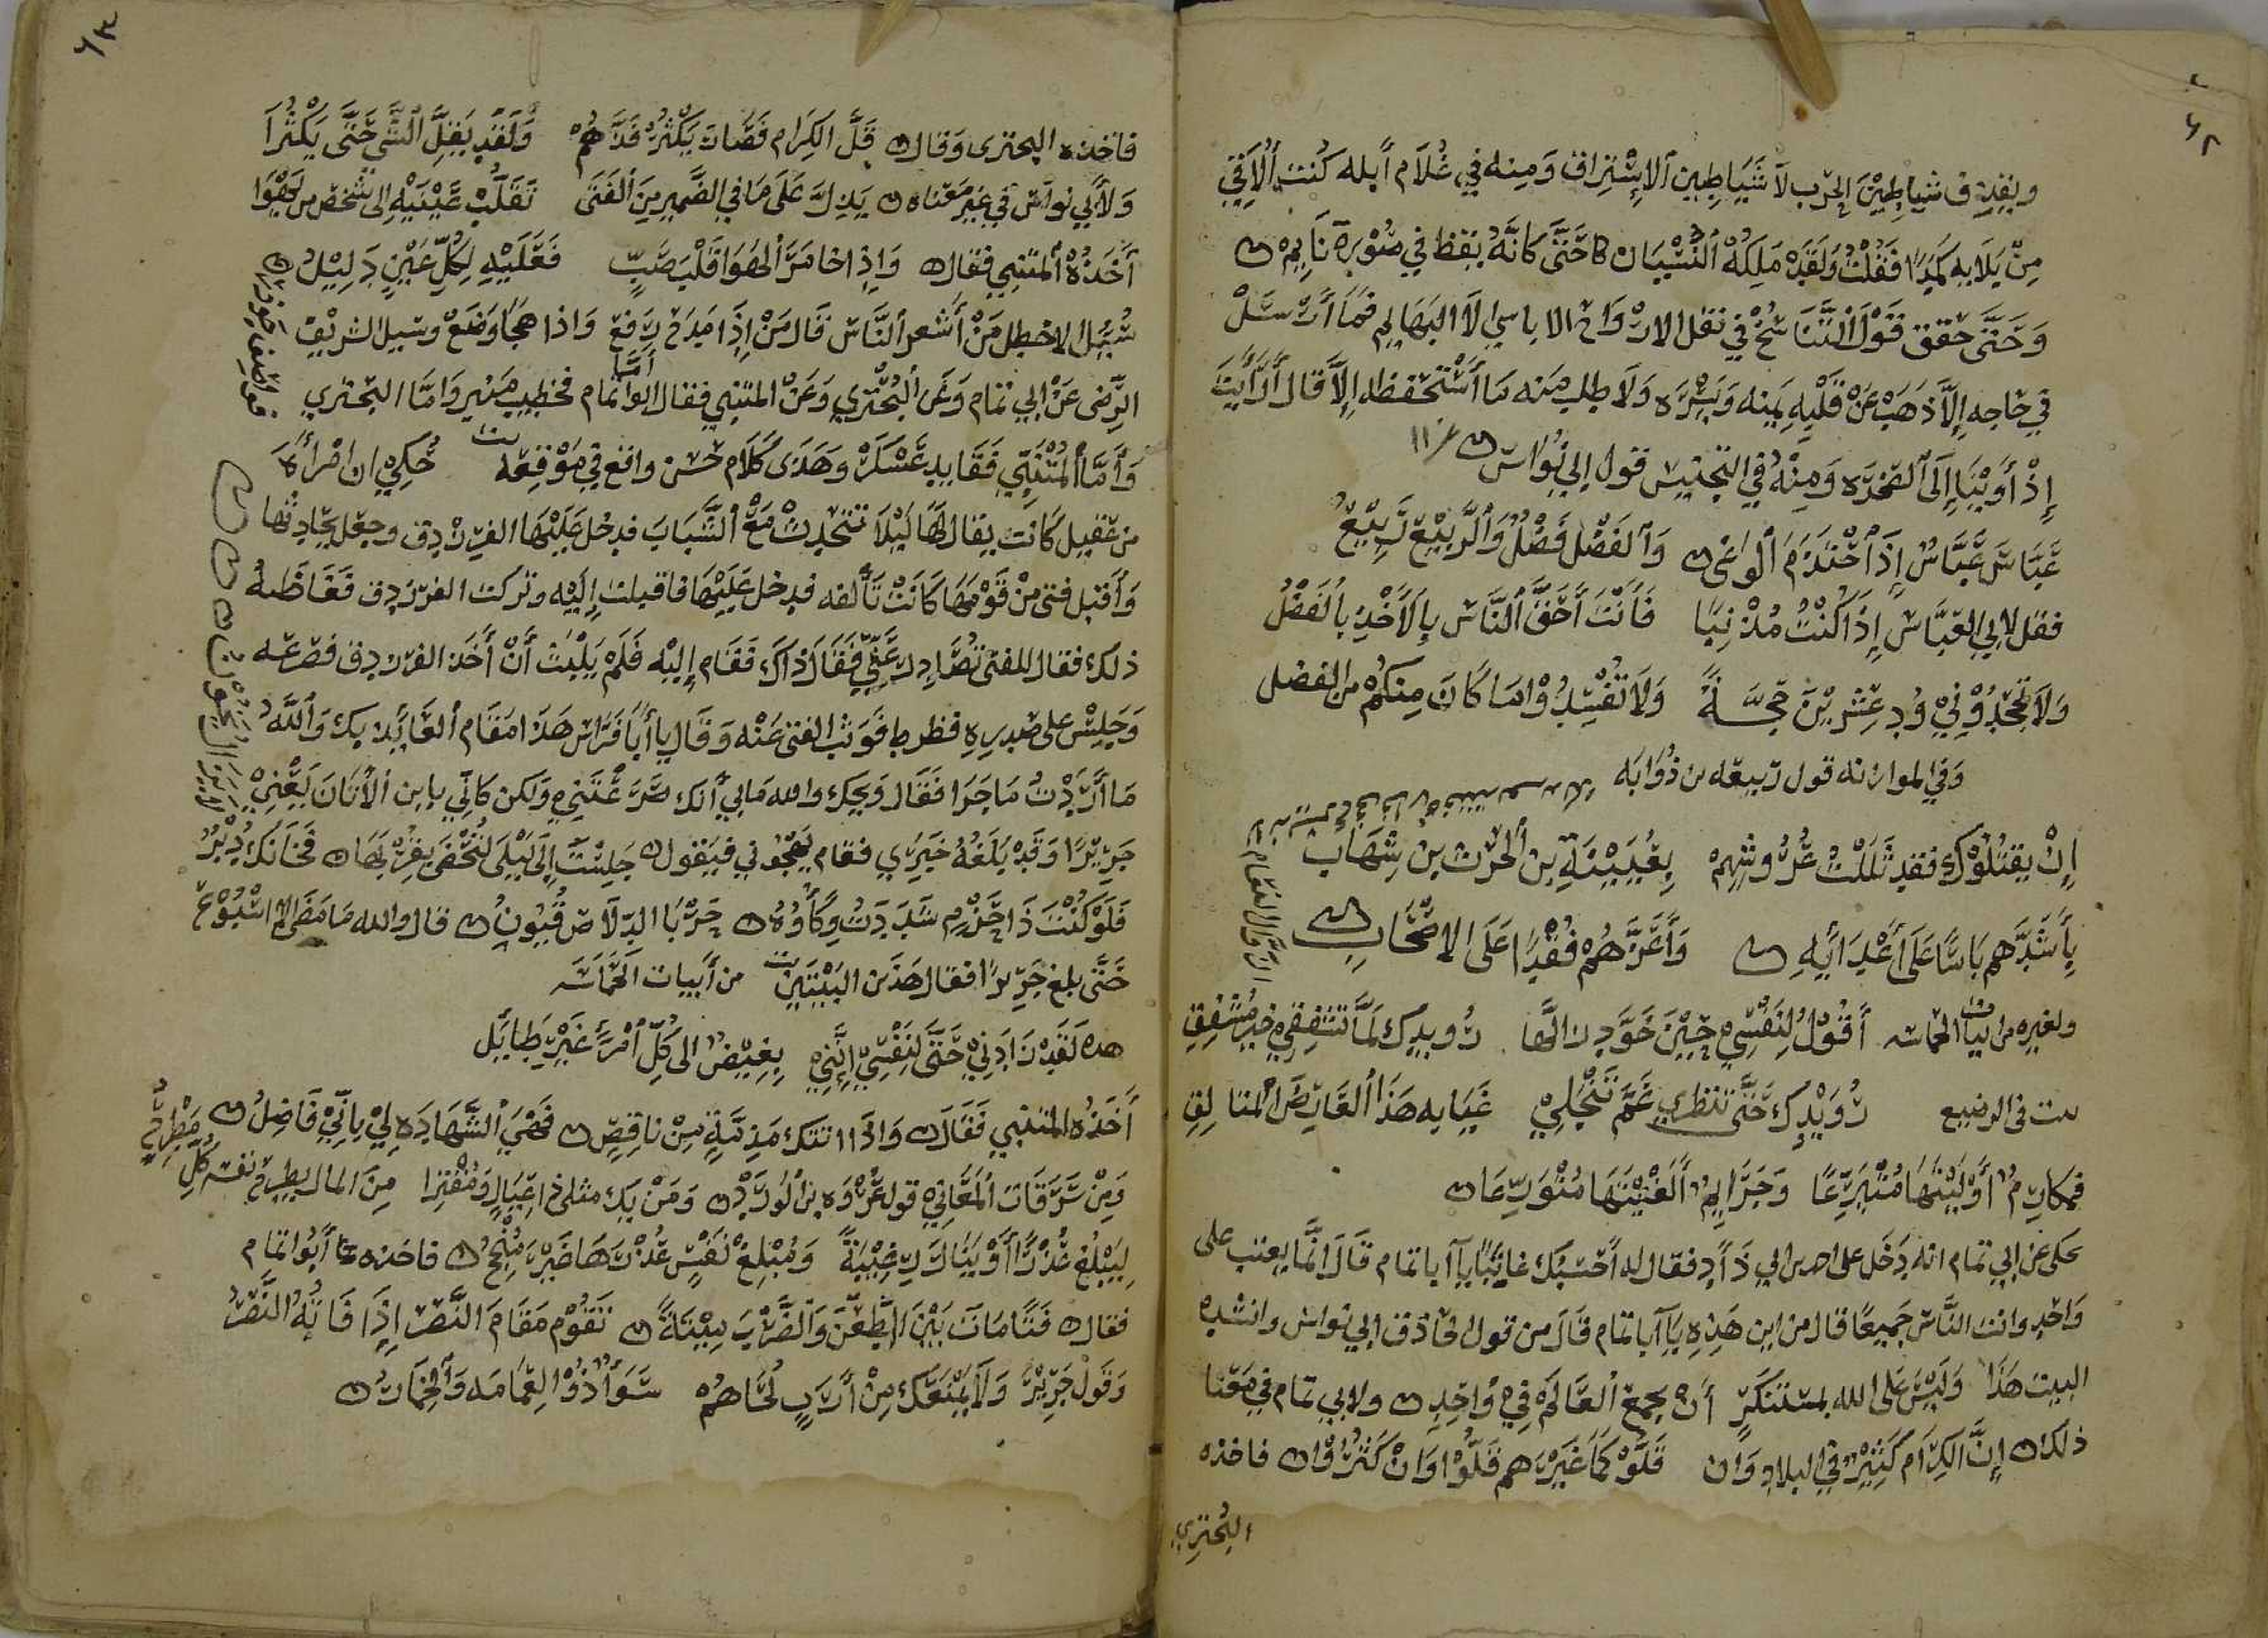 ويقذف شياطين الحرب لا شَيَاطِين الإِسْتِراق وَمِنه في غُلَام أبله كُنت أُلَاقِي
مِنْ بَلَايِه كَمَدًا فَقُلْتُ وَلَقَدْ مَلِكَهُ النِّسْيَان حَتَّى كَانَّهُ يقظ في صُوْرة نَايم
وَحَتَّى حقق قَوْلَ التَّنَاسُخْ في نقل الارْوَاح الى البَهَايم فَمَا أَرْسَلْ
في حَاجه إِلَّا ذَهَبْ عَنْ قَلْبِه وَلَا طلب مِنه مَا أَسْتَحْفظه إِلَّا قال أَرَأَيْتَ
إِذْ أَوَيْنَا إِلَى الصَّخْرَه وَمِنْهُ في التجنيس قول ابي نُوَاسْ
عَبَاسَ عَبَّاسٌ إِذَا أَحْتَدَمَ الوَغى وَالفَضْل فَضْلٌ وَالرَّبِيْع رَبِيْعُ
فقل لابي العَبَّاس إِذَا كُنْتُ مُذْنِبًا فَأَنْتَ أَحَقُّ النَّاسْ بِالأَخْذِ بِالفَضْلُ
وَلَا تَجْحَدُوْنِي وُدِ عِشْرِيْنَ حِجَّـةً وَلَا تُفْسِدُوْا مَا كَانَ مِنكُمْ من الفضل
وَفي الموازنه قول ربيعه بن ذُوَابَه
إِنْ يقتُلُوْكَ فقد ثَلَلْتَ عُرُوشِهِمْ بِعُيَيْنَةِ بن الحَرْث بن شِهَاب
بِأَشَدِّهم بَاسًا عَلَى أَعْدَائِهِ وَأَعَزِّهُمْ فُقْدًا عَلَى الاصْحَابِ
ولغيره من ابيات الحماسه أَقُوْلُ لِنَفْسِي حِيْنَ خَوَّدَ رَالُهَا رُويدك لَمَّا تشفِقِي حِيْن مُشْفِقِ
رُوَيْدِك حَتَّى تنظري عَمَّ تَنْجَلِيْ غَيَايه هَذَا العَارِضَ المتالِقِ
فمكارِمٌ أَوْلَيْتَهَا مُتَبَرِّعًا وَجَرَايِمٌ أَلْغَيْتَهَا مُتَوَرِّعَا
يحكى عن ابي تمام انه دَخَل على احمد بن ابي دَاؤد فقال له أَحْسَبُكَ عَاتِبًا يا أبا تمام قَالَ إِنَّمَا يعتب على
وَاحِدٍ وانت النَّاسْ جَمِيعًا قال من اين هَذِهِ يَا أبا تمام قَالَ من قول الحاذق ابي نواس وانشده
البيت هَذَا وَلَيْسَ عَلَى الله بمستَنْكَرٍ أَنْ يجمعَ العَالَمَ فِيْ وَاحِدِ ولابي تمام في مَعْنَا
ذلك إِنَّ الكِرَام كَثِيْرٌ في البلاد وَإن قَلُّوْ كَمَا غَيْرَهم قَلُّوْا وَانْ كَثُرُوْا فاخذه
البُحتري
٦٣
فاخذه البحترى وَقال قَلَّ الكِرَام فَصَارَ يَكْثُرُ فَذُّهُمْ وَلَقَدْ يَقِلُّ الشَّي حَتَّى يَكْثُرَا
وَلأَبي نواس في غير مَعْنَاه يَدِلُّ عَلَى مَا في الضَّمِير مِنَ الفَتَى تَقَلُّبُ عَيْنَيْهِ إلى شخص من يَهْوَا
أَخَذَهُ المتنبي فقال وَإِذَا خَامَرَ الهَوَا قَلْبَ صَبٍّ فَعَلَيْهِ لِكُلِّ عَيْنٍ دَلِيْلُ
سُئِل الاخطل مَنْ أَشعر النَّاس قَال مَنْ إِذَا مَدَح رَفع وَاذا هجَا وَضَعْ وسئل الشريف
الرَّضى عَنْ ابي تمام وَعَن البُحْتُرِي وَعَنْ المتنبي فقال أمَّا ابوا تمام فخطيب منبر وَامّا البحتري
وَأَمَّا المُتَنَبِّي فَقَايد عَسْكَرْ وهَذَى كَلَام حَسَن واقع في مَوْقِعه حُكِي ان امْرأَةً
من عَقِيل كَانت يقال لَهَا لَيْلَا تتحَدِث مَعَ الشَّبَاب فدخل عَلَيْهَا الفرزدق وجعل يحَادثها
وَأَقبل فتى مِنْ قَوْمَها كَانَتْ تَألفه فدخل عَلَيْهَا فاقبلت إِلَيْه وتركت الفرزدق فَغَاظَهُ
ذلك فقال للفتى تُصَارِعَنِي فَقَال ذاك فَقَام إِلَيْه فَلَمْ يَلْبَث أَنْ أَخَذَ الفرزدق فصرعه
وَجَلِسْ على صَدرِهِ فظرط فَوَثب الفتى عَنْه وَقَال يا أَبَا فَرَاس هَذَا مَقَام العَايذ بك وَاللَّه
مَا أَرَدْتُ مَا جَرَا فَقَال وَيحك والله مَا بي أَنك صَرَعْتَنِي وَلكن كَانِّي بابن الأَتَان يَعْنِيْ
جَرِيْرًا وَقَدْ بَلَغَهُ خَبَرِي فقام يَهْجُوني فيَقول جَلِسْتَ إِلَى لَيْلَى لتُحْظَى بِقُرْبِهَا فَخَانَكَ دُبْرٌ
فَلَوْ كُنْتَ ذَا حَزْمٍ شَدَدتَ وِكَاؤُهُ قال والله مَا مَضَا لي اسْبُوْع
حَتَّى بلغ جَرِيْرًا فقال هَذَين البَيْتَيْن من أَبيات الحَمَاسَه
لَقَدْ زَادَنِيْ حَتَّى لِنَفْسِيْ إِنَّنِيْ بِغِيْضٌ الى كُلِّ أمْرَءٍ غَيْرِ طَايِل
أَخَذه المتنبي فَقَال وَاذَا اتتك مَذِمَّةٍ مِنْ نَاقِصٍ فَهِيَ الشَّهَادَه لِيْ بِأَنِّيْ فَاضِلُ
وَمِنْ سَرَقَات المَعَانِيْ قول عُرْوَه بن الوُرْدُ وَمَنْ يَك مثلي ذا عِيَالٍ وَمُقْتِرًا مِنَ المال يطرح نفسه كُلَّ مَطْرَحِ
لِيَبْلُغ عُذْرًا أَوْ يَنَالَ رَغِيْبَةً وَمُبْلِغ نَفْسٍ عُذْرَهَا مِثْلَ مُنْجِحُ فاخذه أَبُوا تمام
فقال فَتًا مَاتَ بَيْنَ الطَّعْنَ وَالضَّرْبَ مِيْتَةً تَقُوْم مَقَامَ النَّصْر إِذَا فَاتَهُ النَّصْرُ
وَقَوْل جَرِيْر وَلَا يَمْنَعْكَ مِنْ أَرَبٍ لُحَاهُمْ سَوَاءٌ ذُوْ العِمَامَه وَالخِمَارُ